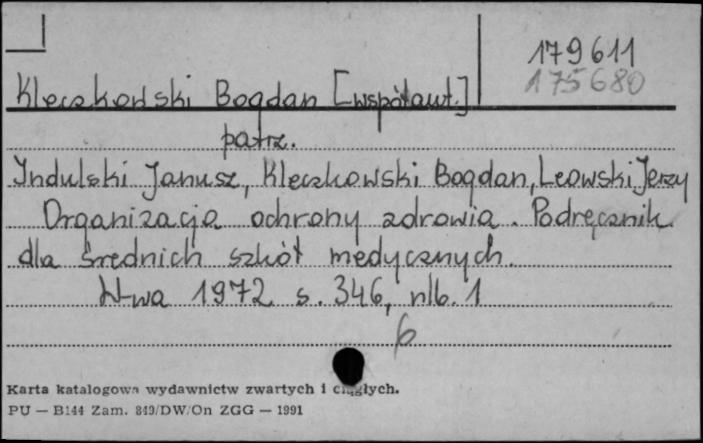 179611
175680
Kleczkowski Bogdan [współaut.]
patrz.
Indulski Janusz, Kleczkowski Bogdan, Leowski Jerzy
Organizacja ochrony zdrowia. Podręcznik
dla średnich szkół medycznych.
W-wa 1972 s. 346, nlb. 1
6
Karta katalogowa wydawnictw zwartych i ciągłych.
PU — B144 Zam. 849/DW/On ZGG — 1991